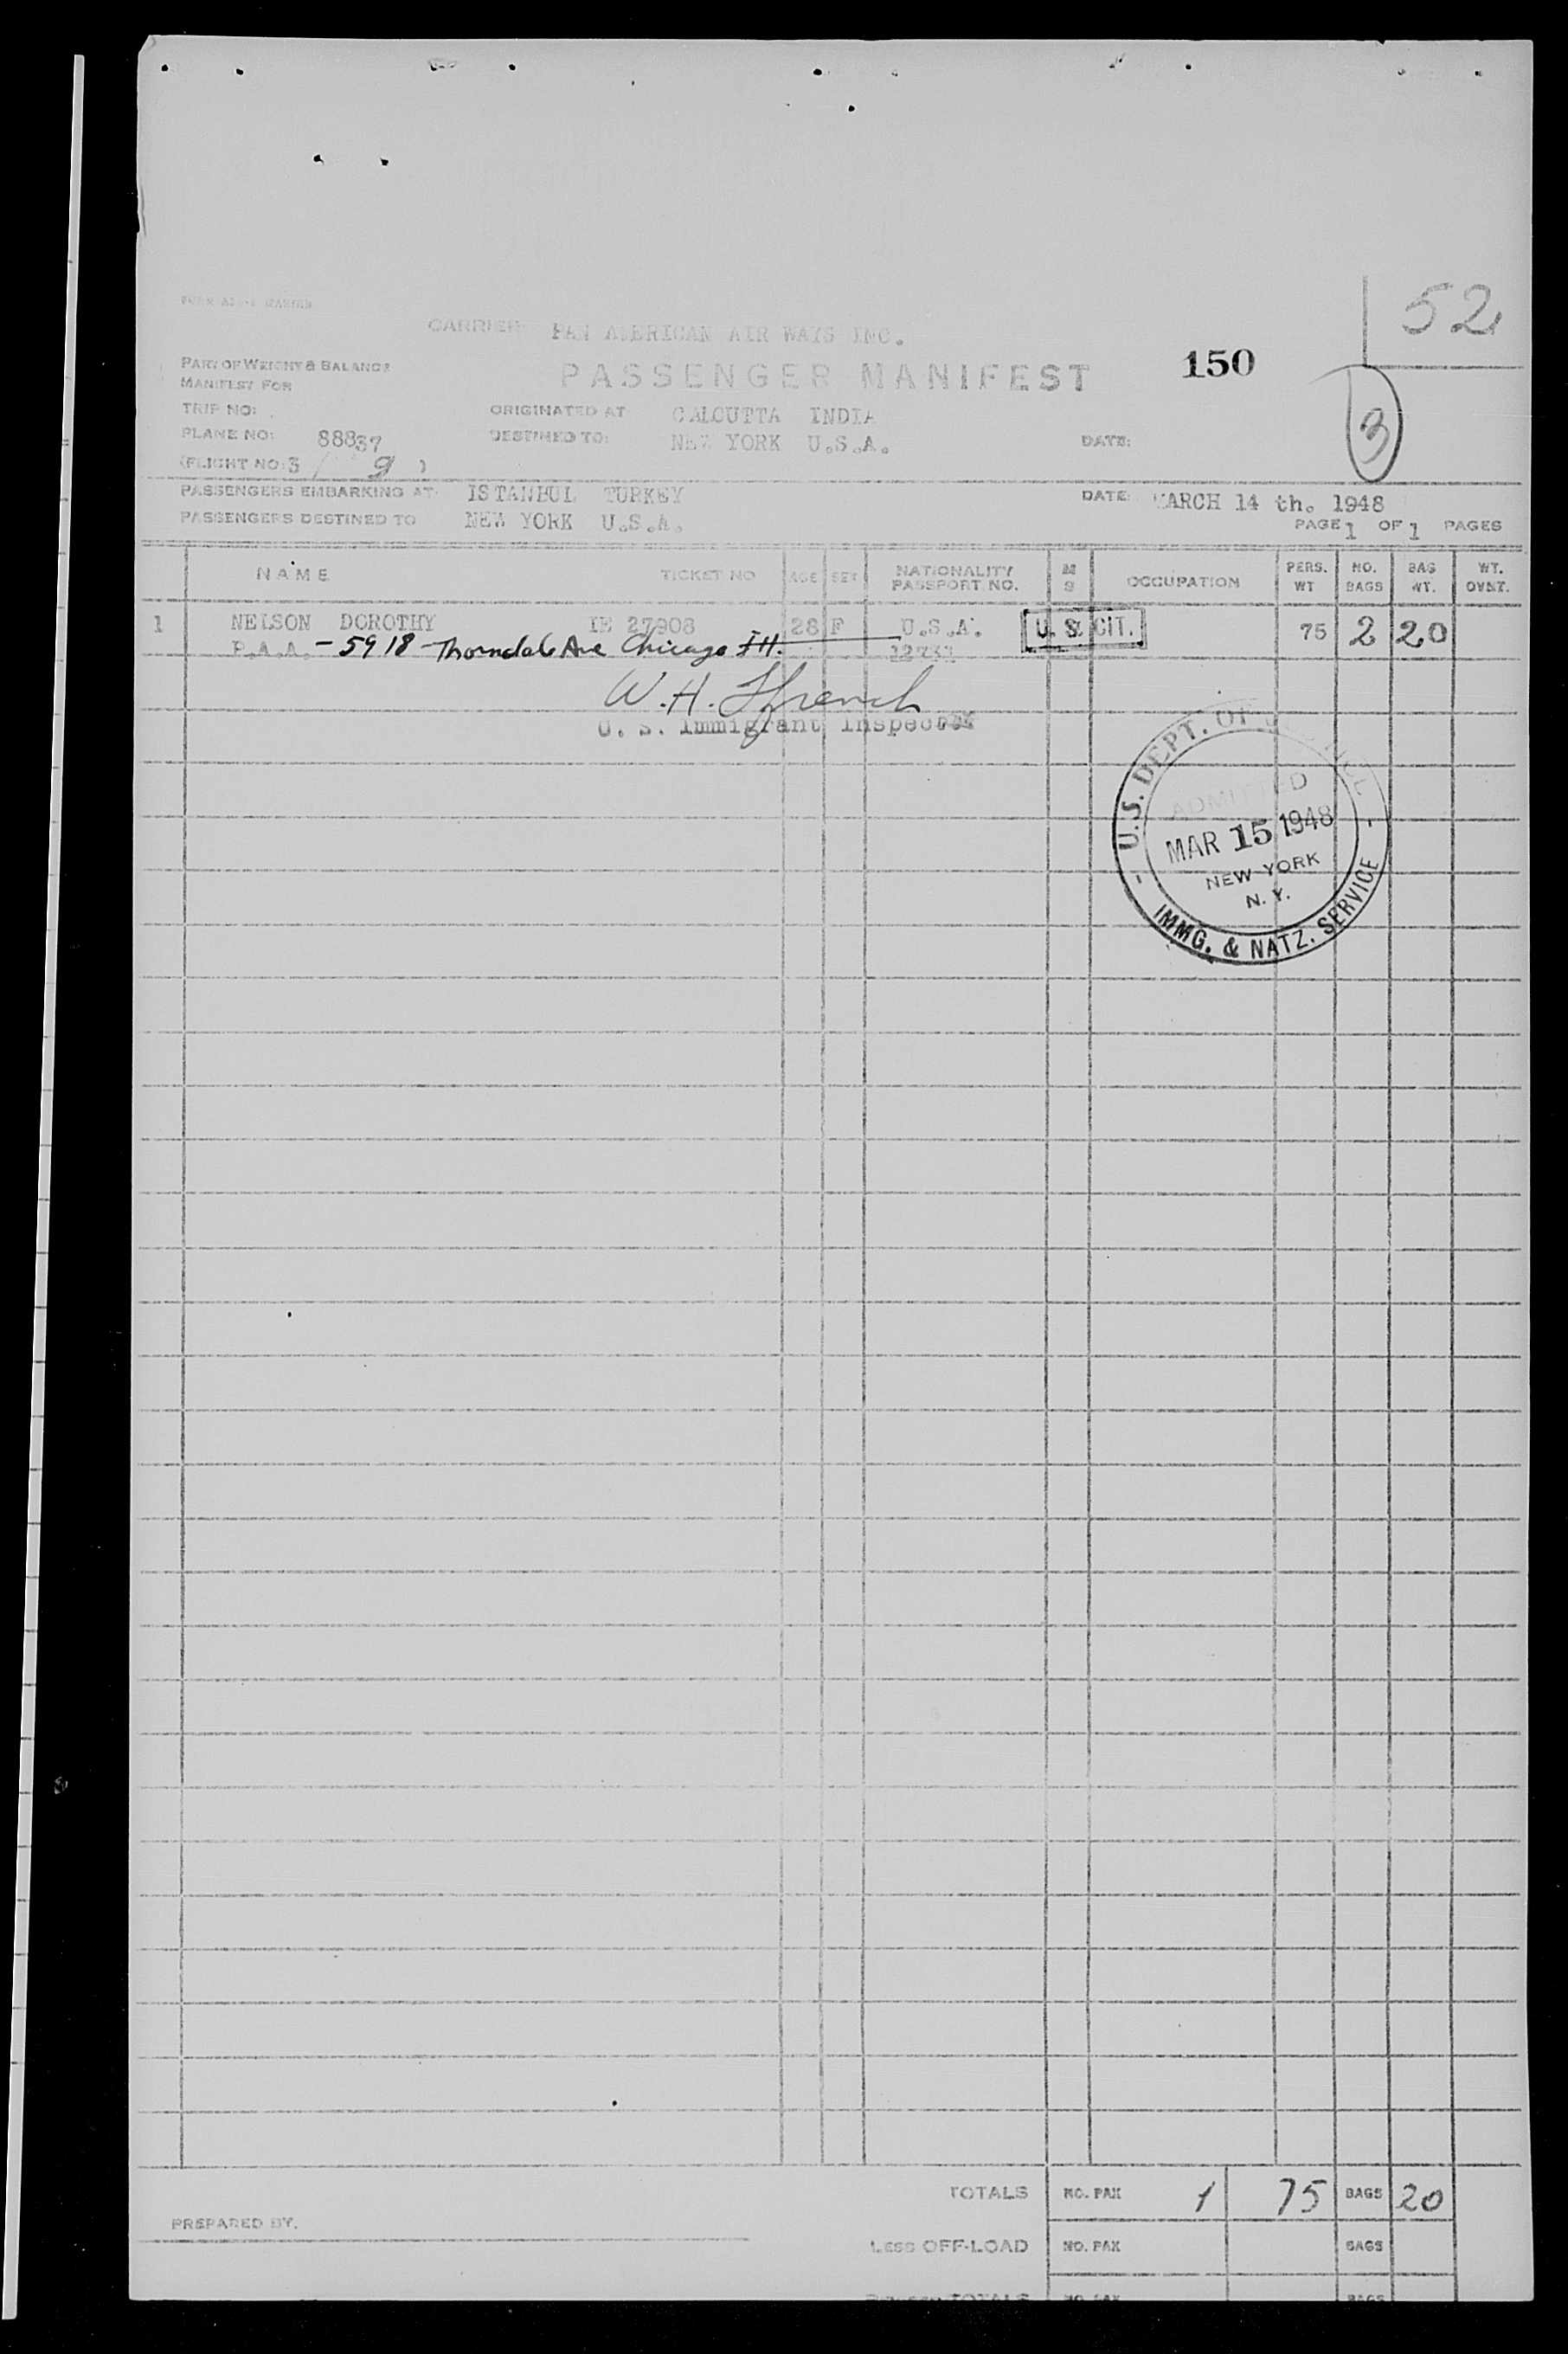 52
CARRIER PAN AMERICAN AIR WAYS INC.
PART OF WEIGHT & BALANCE
MANIFEST FOR
PASSENGER MANIFEST
150
3
TRIP NO:
ORIGINATED AT CALCUTTA INDIA
PLANE NO: 88837
DESTINED TO: NEW YORK U.S.A.
DATE:
(FLIGHT NO: 3 / 9 )
PASSENGERS EMBARKING AT: ISTANBUL TURKEY
DATE: MARCH 14 th. 1948
PASSENGERS DESTINED TO NEW YORK U.S.A.
PAGE 1 OF 1 PAGES
NAME TICKET NO AGE SEX NATIONALITY PASSPORT NO. M S OCCUPATION PERS. WT NO. BAGS BAG WT. WT. OVST.
1 NELSON DOROTHY IE 27908 28 F U.S.A. U. S. CIT. 75 2 20
P.A.A. - 5918 - Thorndale Ave Chicago Ill.
W. H. Ffrench
U. S. Immigrant Inspector
U.S. DEPT. OF JUSTICE
ADMITTED
MAR 15 1948
NEW YORK
N. Y.
IMMG. & NATZ. SERVICE
TOTALS NO. PAX 1 75 BAGS 20
PREPARED BY.
LESS OFF-LOAD NO. PAX BAGS
TOTALS NO. PAX BAGS